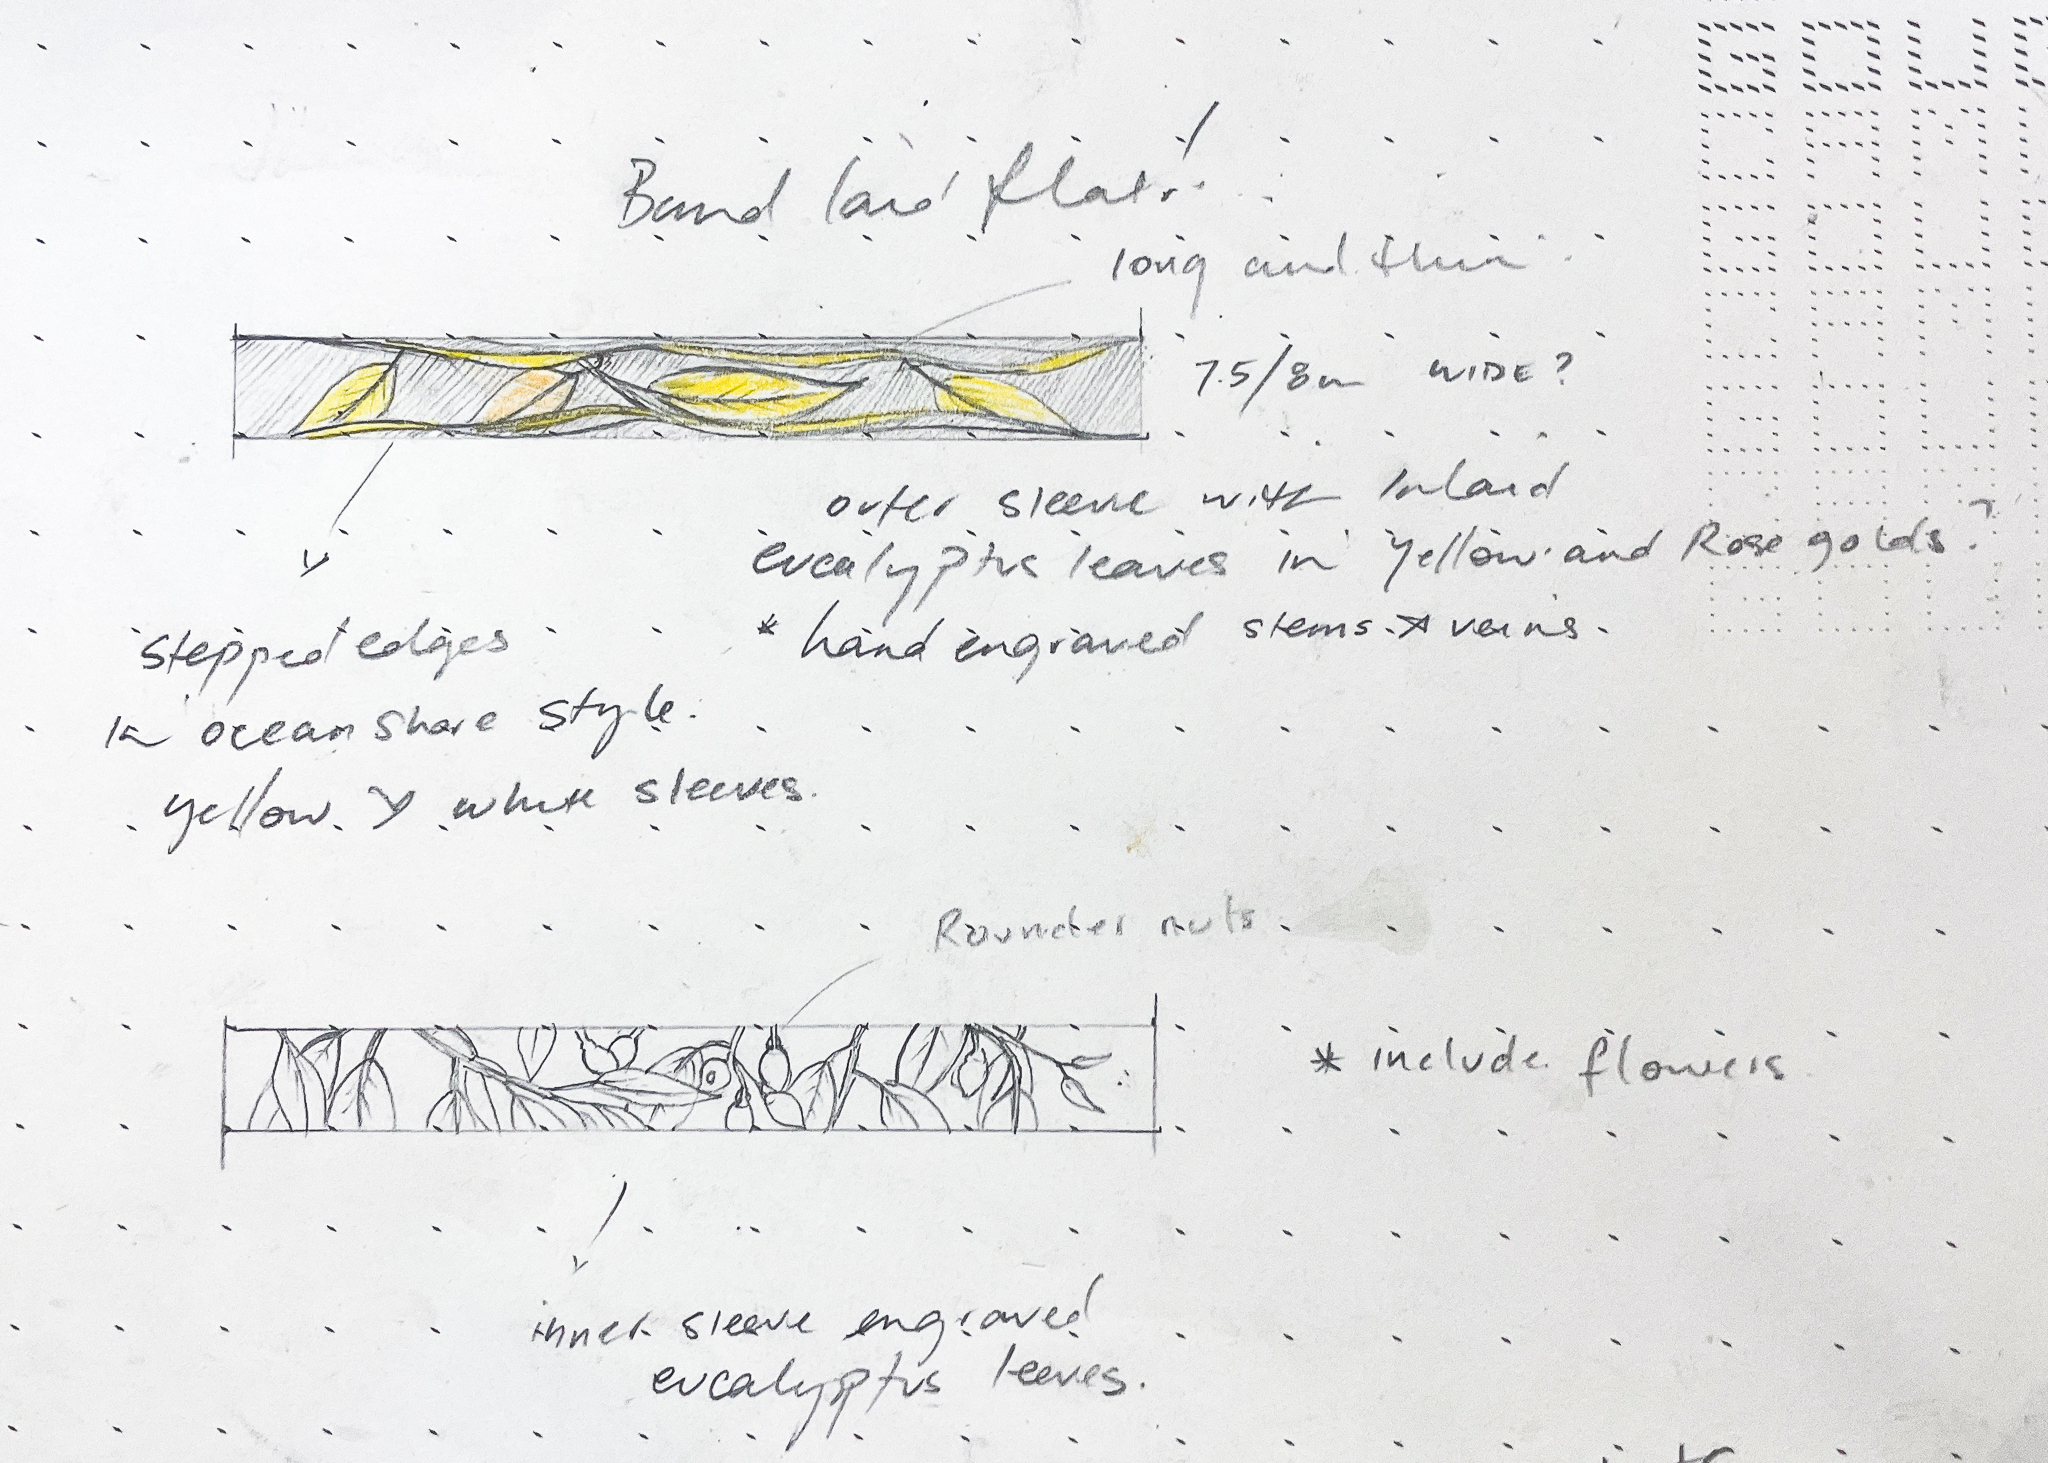 Band laid flat!
long and thin.
7.5/8m WIDE?
outer sleeve with Inlaid
eucalyptus leaves in Yellow and Rose golds?
* hand engraved stems & veins.
stepped edges
in ocean shore style.
yellow & white sleeves.
Rounder nuts.
* include flowers
inner sleeve engraved
eucalyptus leaves.